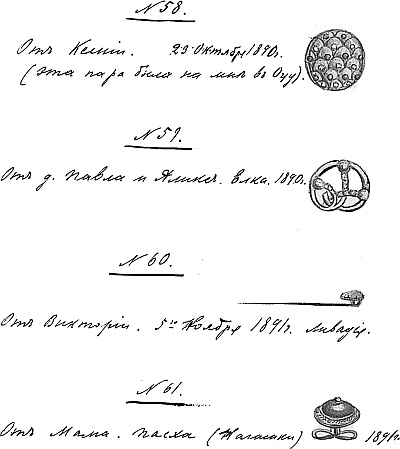 N 58.
Отъ Ксеніи. 23 Октября 1890 г.
(эта пара была на мнѣ въ Оцу).
N 59.
Отъ д. Павла и Аликс. Елка. 1890 г.
N 60.
Отъ Викторіи. 5го Ноября 1891 г. Ливадія.
N 61.
Отъ Мама. Пасха 1891 г.